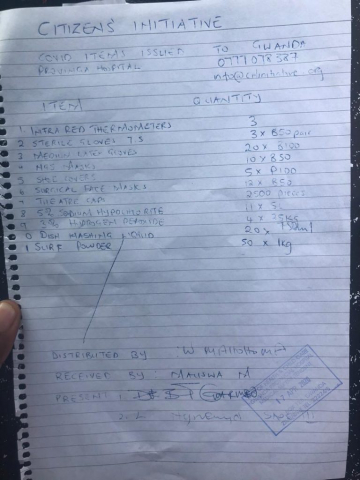 CITIZENS INITIATIVE
COVID ITEMS ISSUED TO GWANDA
PROVINCIAL HOSPITAL 0777078587
ITEM QUANTITY
INFRA RED THERMOMETERS 3
2 STERILE GLOVES 7.5 3 x B50 pair
3 MEDIUM LATEX GLOVES 20 x B100
MASKS 10 x B50
5 SHOE COVERS 5 x P100
6 SURGICAL FACE MASKS 12 x B50
7 THEATRE CAPS 2500 pieces
8 SODIUM HYPOCHLORITE 11 x 5L
9 HYDROGEN PEROXIDE 4 x 25KG
0 DISH WASHING LIQUID 20 x 750ml
1 SURF POWDER 50 x 1kg
DISTRIBUTED BY W
RECEIVED BY M
PRESENT 1